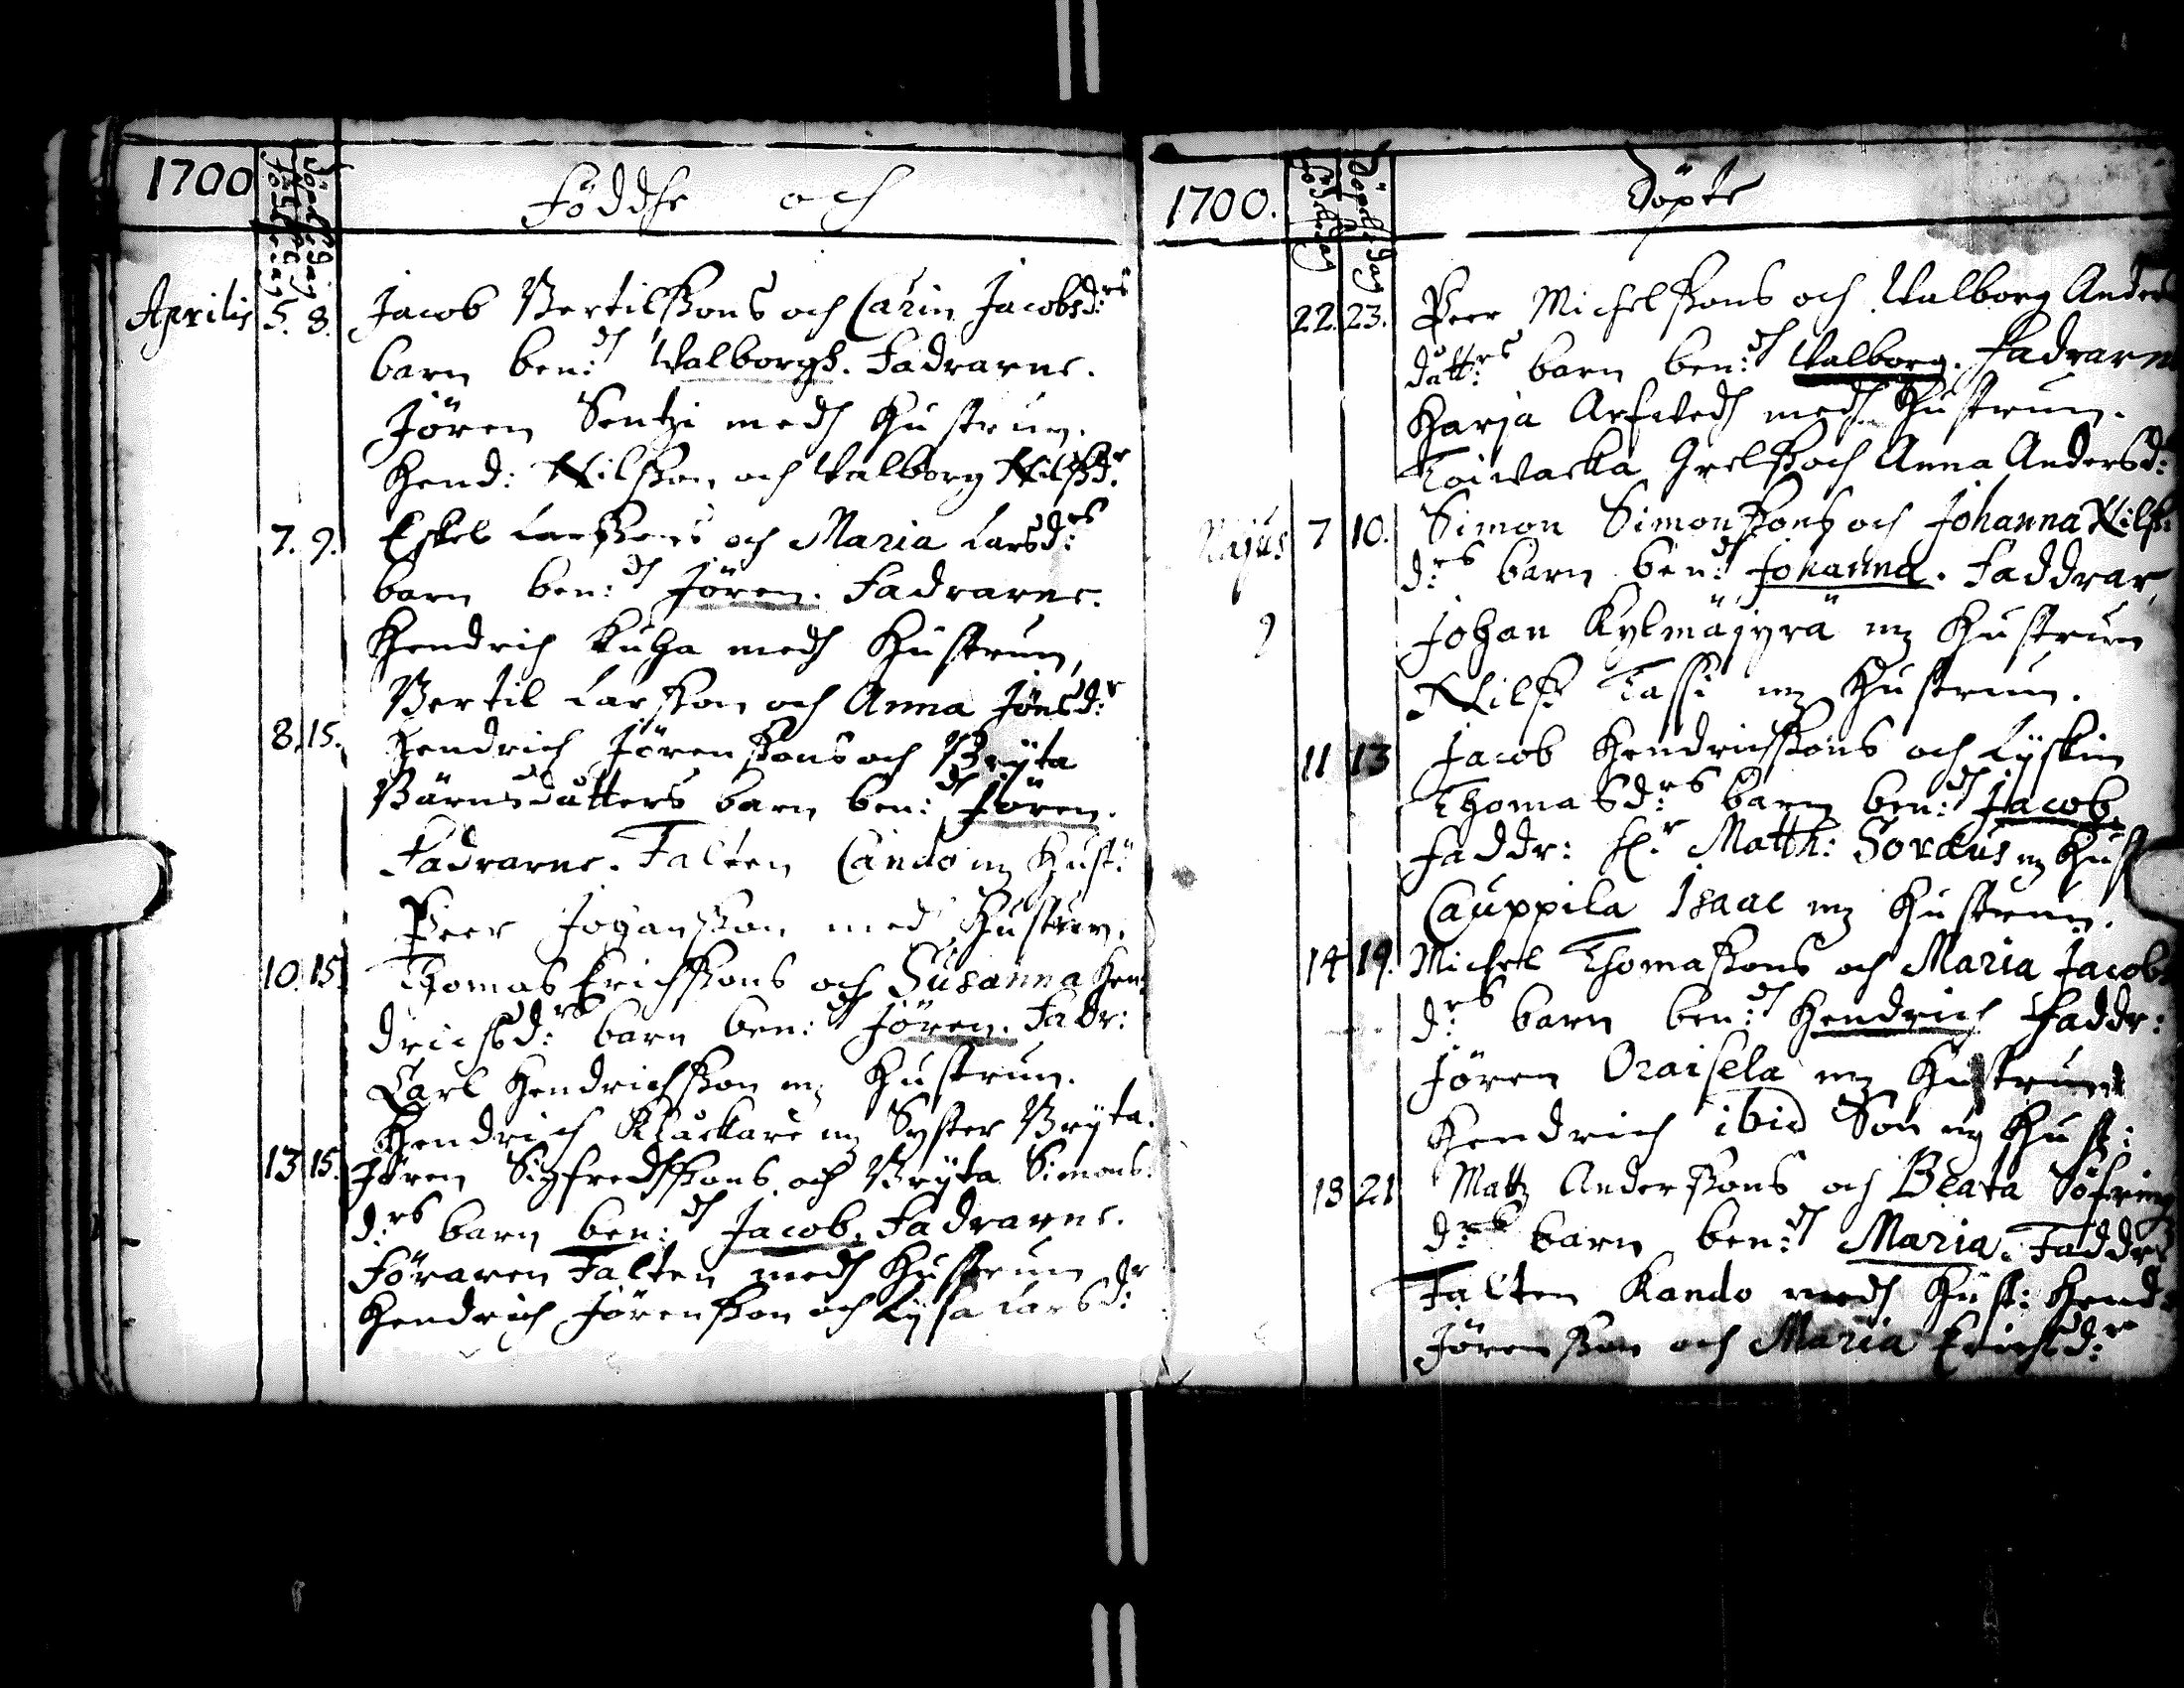 1700
Födelse dag
Döpelse dag
Föddse och
Aprilis 5. 8. Jacob Bertilssons och Carin Jacobsd:rs
barn ben:d Walborgh. Fadrarne.
Jören Sentzi medh Hustrun.
Hend: Nilsson och Walborg Nilsd:r
7. 9. Eskel Larssons och Maria Larsd:rs
barn ben:d Jören. Fadrarne.
Hendrich Kuha medh Hustrun,
Bertil Larsson och Anna Jönsd:r
8. 15. Hendrich Jörenssons och Brÿta
Bärnsdutters barn ben:d Jören.
Fadrarne. Falten Cando mz Hust:
Peer Johansson med Hustrun.
10. 15 Thomas Erichssons och Susanna Hen-
drichsd:rs barn ben:d Jören. Fadr:
Carl Hendrichsson mz Hustrun.
Hendrich Kluckare mz Syster Brÿta.
13 15. Jören Sigfredssons och Brÿta Simons
d:rs barn ben:d Jacob. Fadrarne.
Föraren Falten medh Hustrun
Hendrich Jörensson och Lysa Larsd:r
1700.
Födelse dag
Döpelse dag
Döpte
22. 23. Peer Michelssons och Walborg Anders
dutt:rs barn ben:d Walborg. Fadrarne
Harja Arfwedh medh Hustrun.
Toiwacka Grels och Anna Andersd:
Majus 7 10. Simon Simonssons och Johanna Nils
d:rs barn ben:d Johanna. Faddrar,
Johan Kylmäjyrä mz Hustrun
Nils Tassi mz Hustrun.
11 13 Jacob Hendrichssons och Lÿskin
Thomasd:rs barn ben:d Jacob.
Faddr: H:r Matth: Soræus mz Hust
Cauppila Isaac mz Hustrun.
14 19. Michel Thomassons och Maria Jacobs
d:rs barn ben:d Hendrich Faddr:
Jören Oraisela mz Hustrun
Hendrich ibid Son mz Hust:
18 21 Matz Anderssons och Beata Söfring
d:rs barn ben:d Maria. Faddr
Falten Kando medh Hust: Hend
Jörensson och Maria Erichsd:r